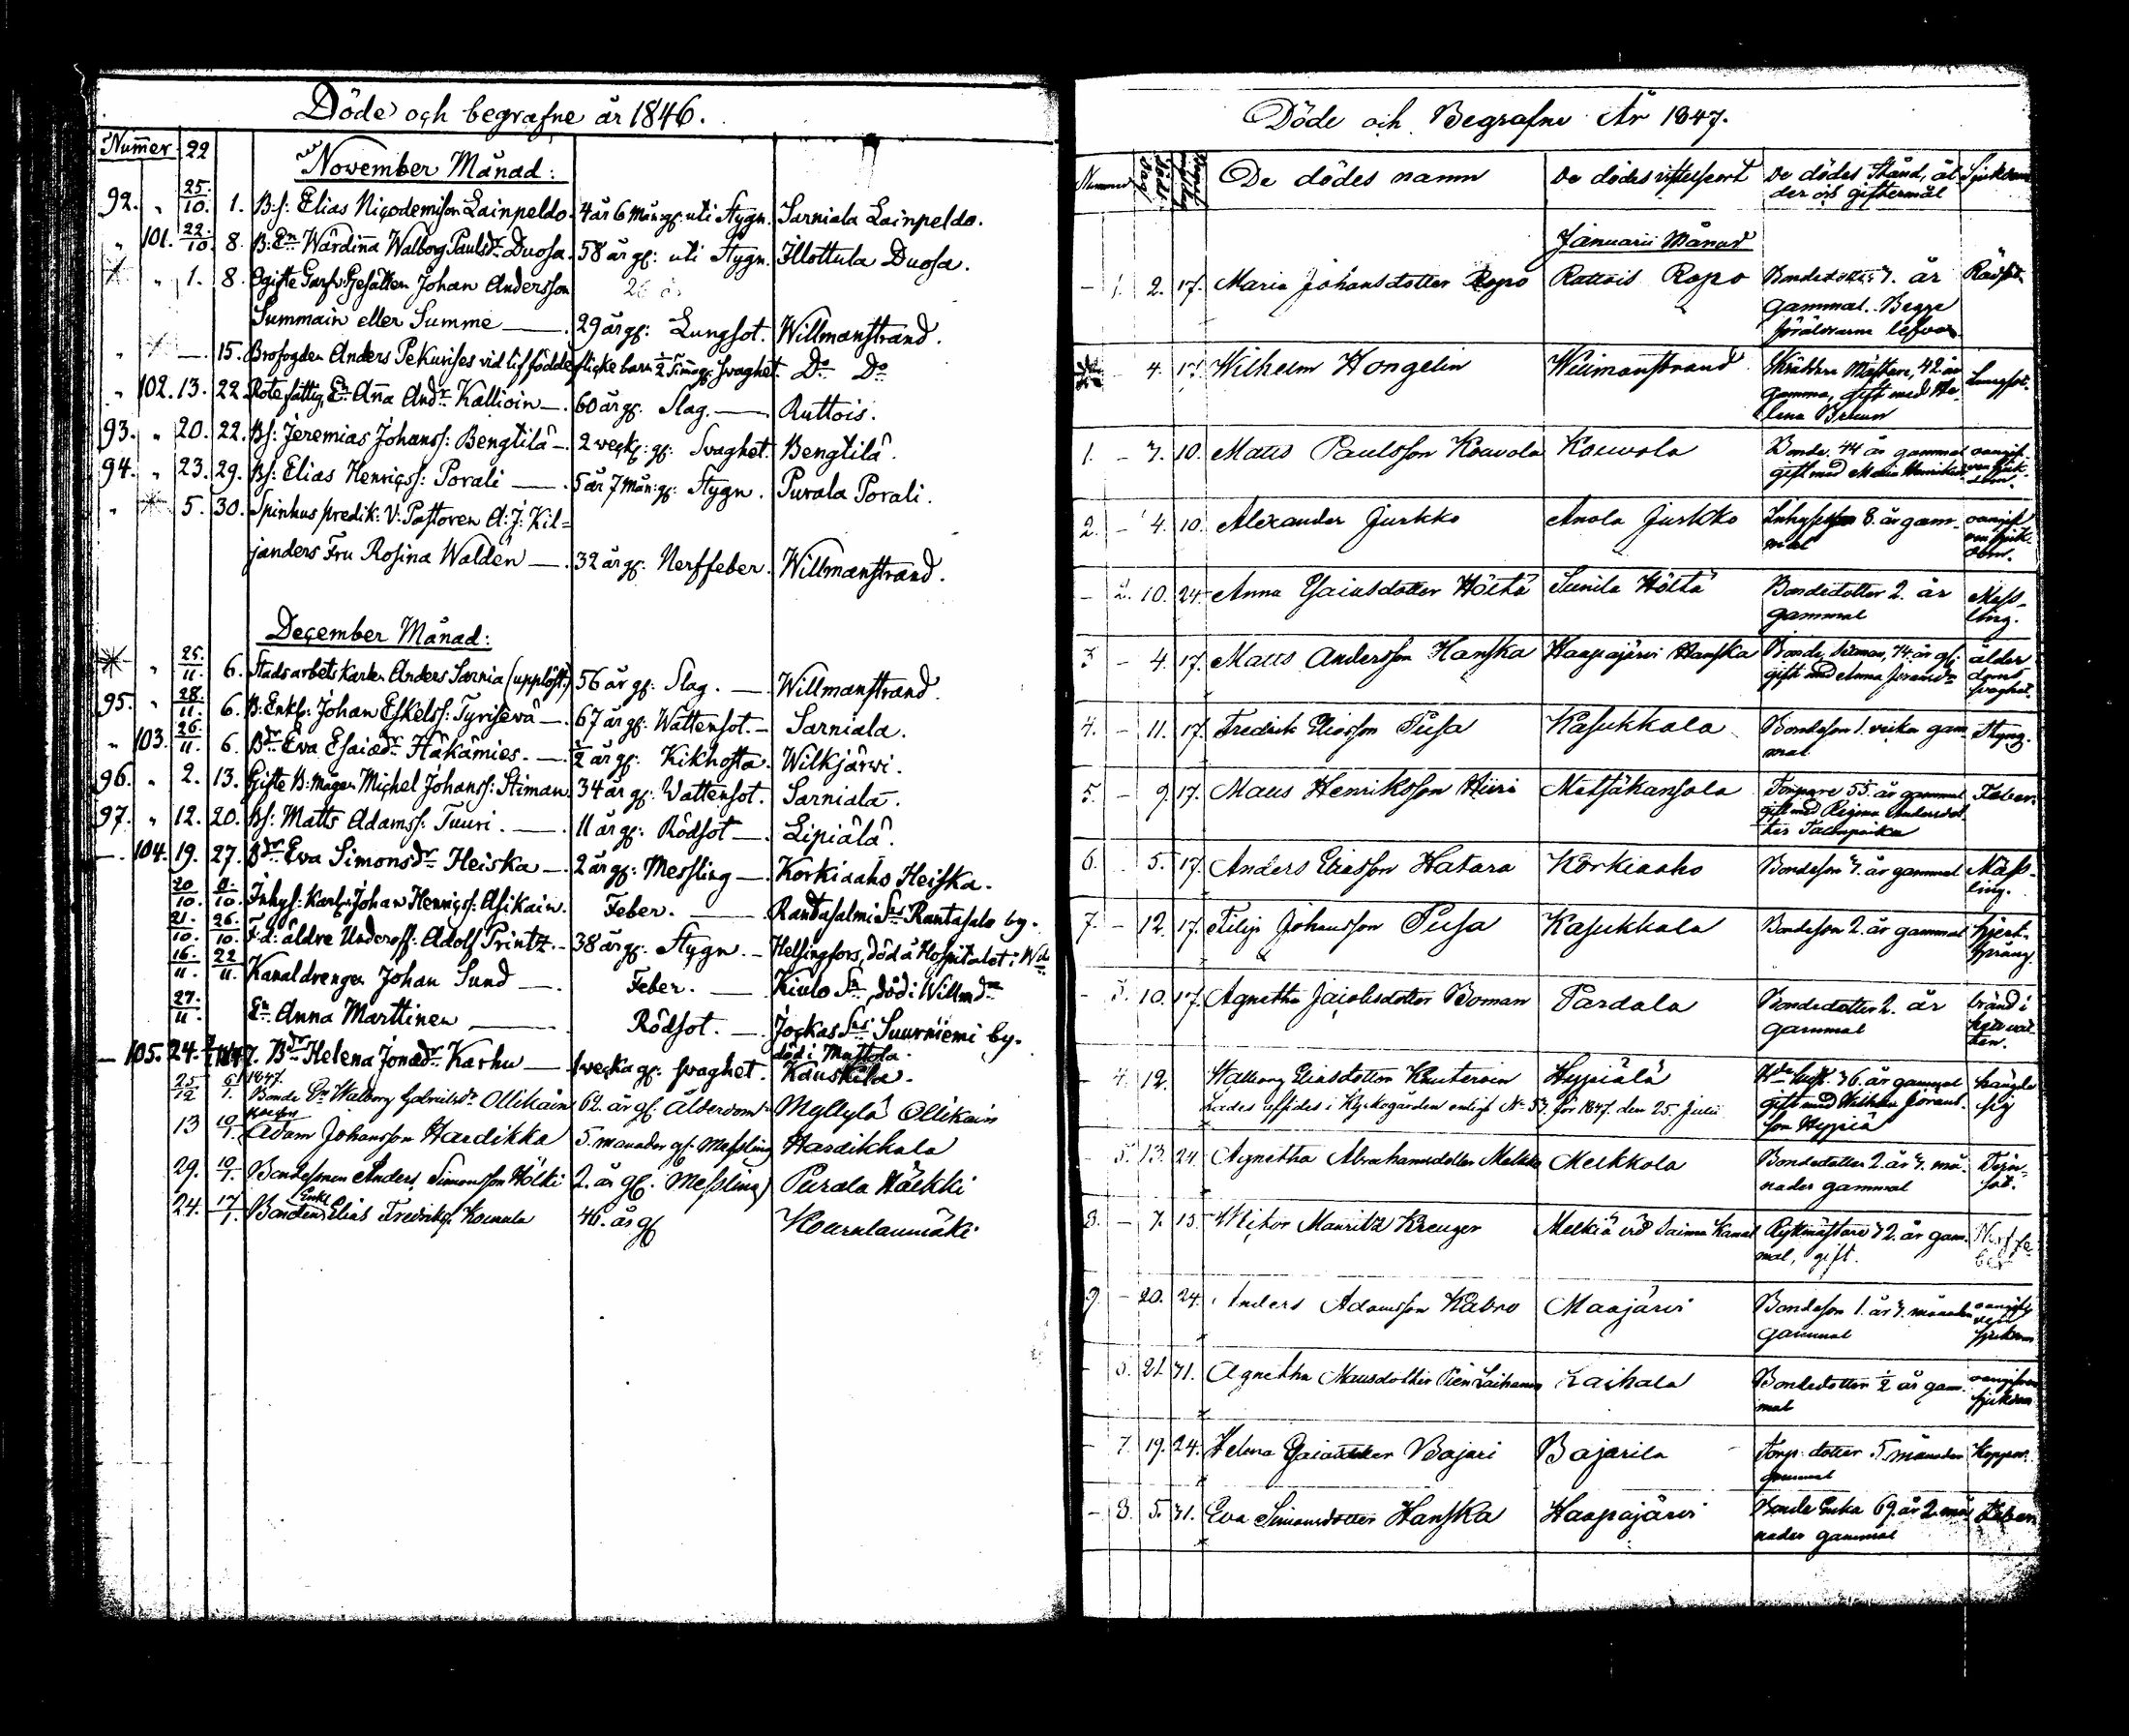 Döde och begrafne år 1846.
Nummer 22
November Månad:
92. " 25/10. 1. B:s: Elias Nicodemisson Lainpeldo. 4 år 6 mån: gl: uti Stygn. Sarniala Lainpeldo.
" 101. 22/10 8. B: En: Wärdinna Walborg Paulsdr Duosa. 58 år gl: uti Stygn. Illottula Duosa.
" 1. 8. Ogifte Garfv: Gesällen Johan Andersson
Summain eller Summe — 29 år gl: Lungsot. Willmanstrand.
" — 15. Brofogden Anders Pekurises vid lif födde flicke barn 1/2 Timme gl. svaghet. Do Do
" 102. 13. 22. Rote fattig En Anna Andr Kallioin — 60 år gl. Slag. — Ruttois.
93. " 20. 22. Bs: Jeremias Johanss: Bengtilä — 2 veck: gl: Svaghet. Bengtilä.
94. " 23. 29. Bs: Elias Henricss: Porali — 5 år 7 Mån: gl: Stygn. Purala Porali.
" 5. 30. Spinhus predik: V: Pastoren A: J: Kil=
janders Fru Rosina Walden — 32 år gl: Nerffeber. Willmanstrand.
December Månad:
" 25./11. 6. Stads arbets karlen Anders Sarnia (upplöst.) 56 år gl: Slag. — Willmanstrand.
95. " 28./11. 6. B: Enkl: Johan Eskelss: Tyrisevä — 67 år gl: Wattensot. — Sarniala.
" 103. 26./11. 6. Bdr Eva Esaiædr Häkämies. — 1/2 år gl: Kikhosta. Wilkjärwi.
96. " 2. 13. Gifte B: mågen Michel Johanss: Stiman 34 år gl: Wattensot. Sarniala.
97. " 12. 20. Bs: Matts Adamss: Tuuri. — 11 år gl: Rödsot — Lipiälä.
— 104. 19. 27. Bdr Eva Simonsdr Heiska — 2 år gl: Messling — Korkiaaho Heiska.
20/10. 10. Inhys: Karl: Johan Henricss: Asikain. Feber. — Randasalmi Sn: Rantasalo by.
21./10. 26./10. F: d: äldre Underoff: Adolf Printz. — 38 år gl. Stygn. — Helsingfors, död å Hospitalet i W
16./11. 22/11. Kanaldrengen Johan Sund — Feber. — Kiulo Sn, död i Willm
27./11. En Anna Marttinen — Rödsot. — Jockas Sns Suurniemi by.
död i Mattola.
— 105. 24. 1847. Bdr Helena Jonædr Karhu — 1 vecka gl: svaghet. Kauskila.
25/12 6/1 1847. Bonde En Walborg Gabrielsdr Ollikain 62. år gl. Ålderdom Myllylä Ollikain
13 10/1. Adam Johansson Hardikka 5. månader gl. Messling Hardikkala
29. 10/1. Bondesonen Anders Simonsson Hölki 2. år gl. Messling Purala
24. 17/1. Bondens Enkl Elias Fredriks. Kouvula 46. år gl
Döde och Begrafne År 1847.
De dödes namn De dödes vistelseort De dödes Stånd, ål-
der och giftermål Sjukdom
Januarii Månad
— 1. 2. 17. Maria Johansdotter Ropo Rattois Ropo Bondedotter 7. år Rödsot
gammal. Begge
föräldrarne lefva
4. 17. Wilhelm Hongelin Willmanstrand Skräddare Mästare, 42 år Lungsot.
gammal, gift med He-
lena Bruun
1. — 7. 10. Matts Paulsson Kouvola Kouvola Bonde 44 år gammal oangif-
gift med Maria Henriksd. ven sjuk-
dom.
2. — 4. 10. Alexander Jurkko Anola Jurkko Inhyseson 8. år gam- oangif
mal ven sjuk-
dom.
— 2. 10. 24. Anna Esaiasdotter Höltä Sunila Höltä Bondedotter 2. år Mäss-
gammal ling.
3 — 4. 17. Matts Andersson Hanska Haapajärvi Hanska Bonde, 74. år gl: ålder
gift med Anna doms
svaghet.
4. — 11. 17. Fredrik Eliasson Pusa Kasukkala Bondeson 1. vecka gam- Styng.
mal
5. — 9 17. Matts Henriksson Hiiri Metsäkansola Torpare 55. år gammal Feber
gift med Regina Andersdot-
ter
6. 5. 17. Anders Eliasson Hatara Korkiaaho Bondeson 7. år gammal Mäss-
ling.
7. — 12. 17. Filip Johansson Pusa Kasukkala Bondeson 2. år gammal hjert-
språng.
— 3. 10. 17. Agnetha Jacobsdotter Boman Pardala Bondedotter 2. år bränd i
gammal
— 4. 12. Walborg Eliasdotter Hyppiälä 36. år gammal hängde
Lades affsides i Kyrkogården enligt No 53. för 1847. den 25. Julii gift med Wilhelm Jörans- sig
son Hyppiä
— 5. 13. 24. Agnetha Abrahamsdotter Melkko Melkkola Bondedotter 2. år 7. må-
nader gammal
8. — 7. 15. Victor Mauritz Kreuger Melkiä vid Saima Kanal Ryttmästare 32. år gam- Nerffe-
mal, gift. ber
9. — 20. 24. Anders Adamsson Maajärvi Bondeson 1. år 7. månader oangif-
gammal ven
sjukdom
— 6. 21. 31. Agnetha Mattsdotter Pien Laihanen Laihala Bondedotter 1/2 år gam- oangifven
mal sjukdom
— 7. 19. 24. Helena Esaiasdotter Bajari Bajarila Torp. dotter 5. månader Koppor.
gammal
— 8. 5. 31. Eva Simonsdotter Hanska Haapajärvi Bonde Enka 69. år 2. må- Feber
nader gammal